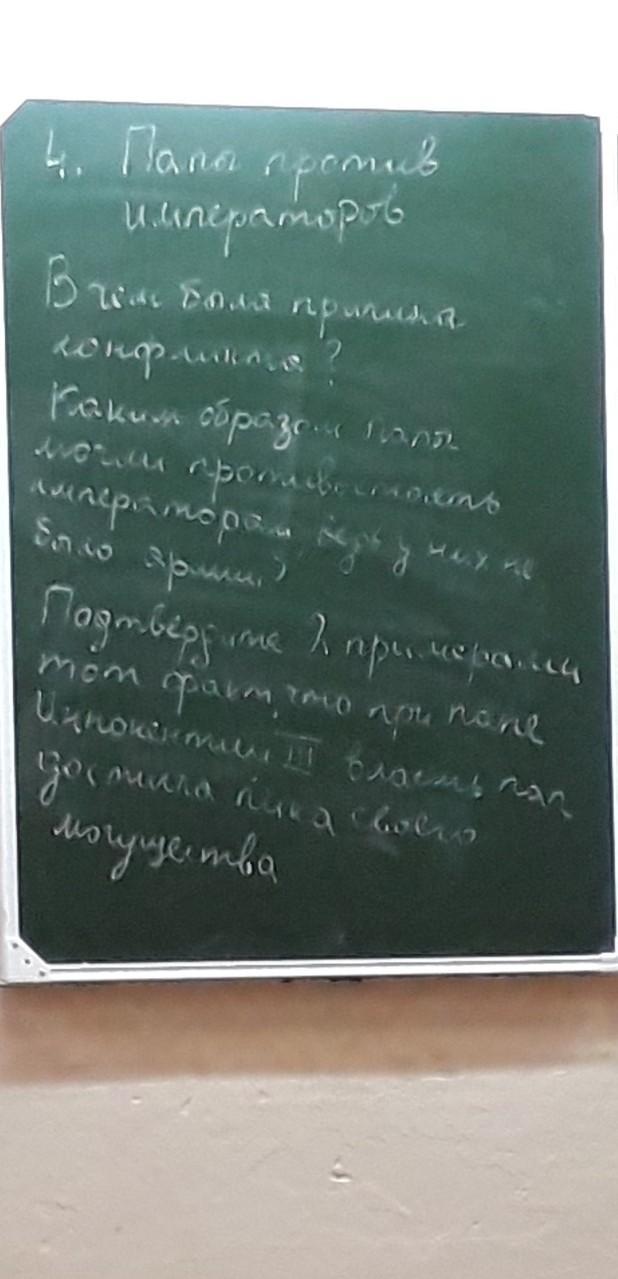 4. Папы против
императоров
В чем была причина
конфликта?
Каким образом папы
могли противостоять
императорам, ведь у них не
было армии?
Подтвердите 2 примерами
тот факт, что при папе
Иннокентии III власть пап
достигла пика своего
могущества